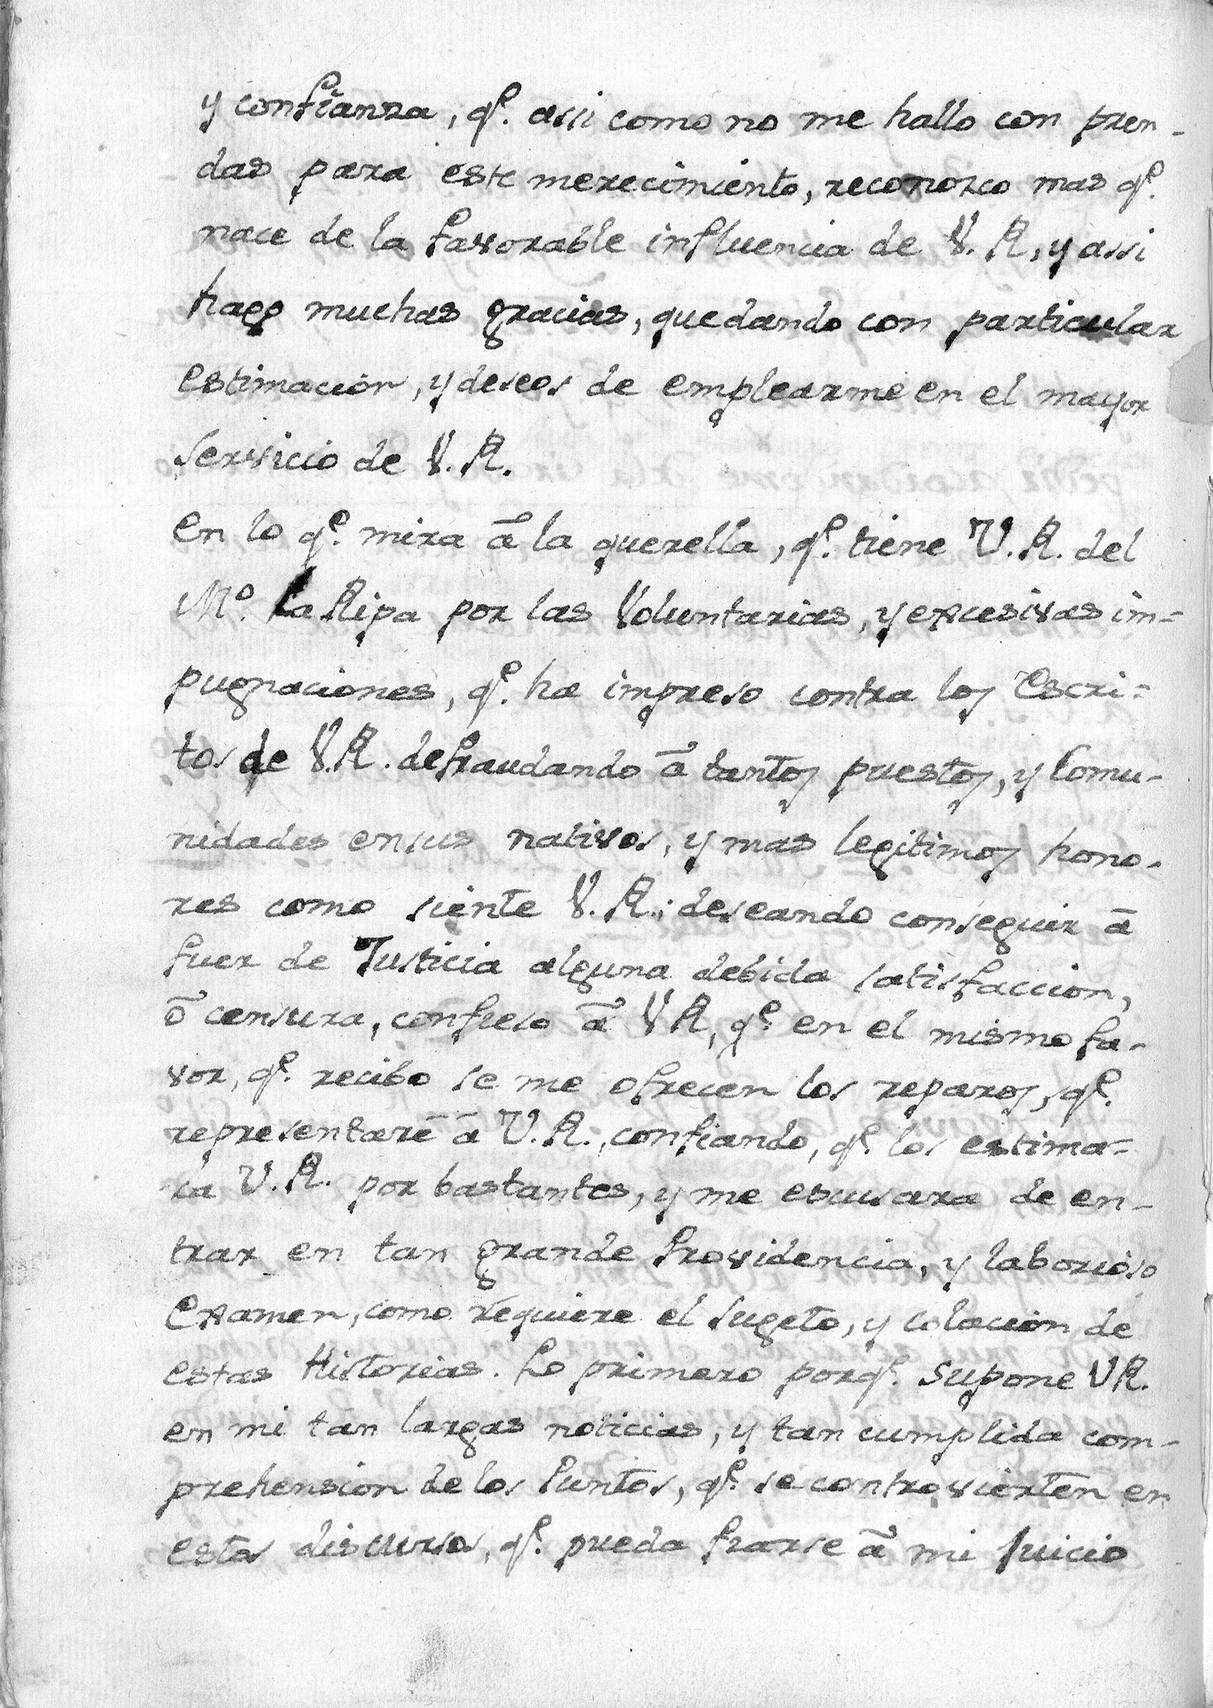 y confianza, q.e assi como no me hallo con pren-
das para este merecimiento, reconozco mas q.e
nace de la favorable influencia de V. R, y assi
hago muchas gracias, quedando con particular
estimacion, y deseos de emplearme en el mayor
servicio de V. R.
En lo q.e mira â la querella, q.e tiene V. R. del
M.o La Ripa por las Voluntarias, y excesivas im-
pugnaciones, q.e ha impreso contra los Escri-
tos de V.R. defraudando â tantos puestos, y Comu-
nidades en sus nativos, y mas legitimos hono-
res como siente V. R.; deseando conseguir â
fuer de Justicia alguna debida satisfaccion,
ô censura, confieso â VR, q.e en el mismo fa-
vor, q.e recibo se me ofrecen los reparos, q.e
representarê â V. R., confiando, q.e los estima-
ra V. R. por bastantes, y me escusara de en-
trar en tan grande Providencia, y laborioso
Examen, como requiere el sugeto, y colacion de
estas Historias. Lo primero porq.e supone VR.
en mi tan largas noticias, y tan cumplida com-
prehension de los Puntos, q.e se controvierten en
estos discursos, q.e pueda fiarse â mi Juicio